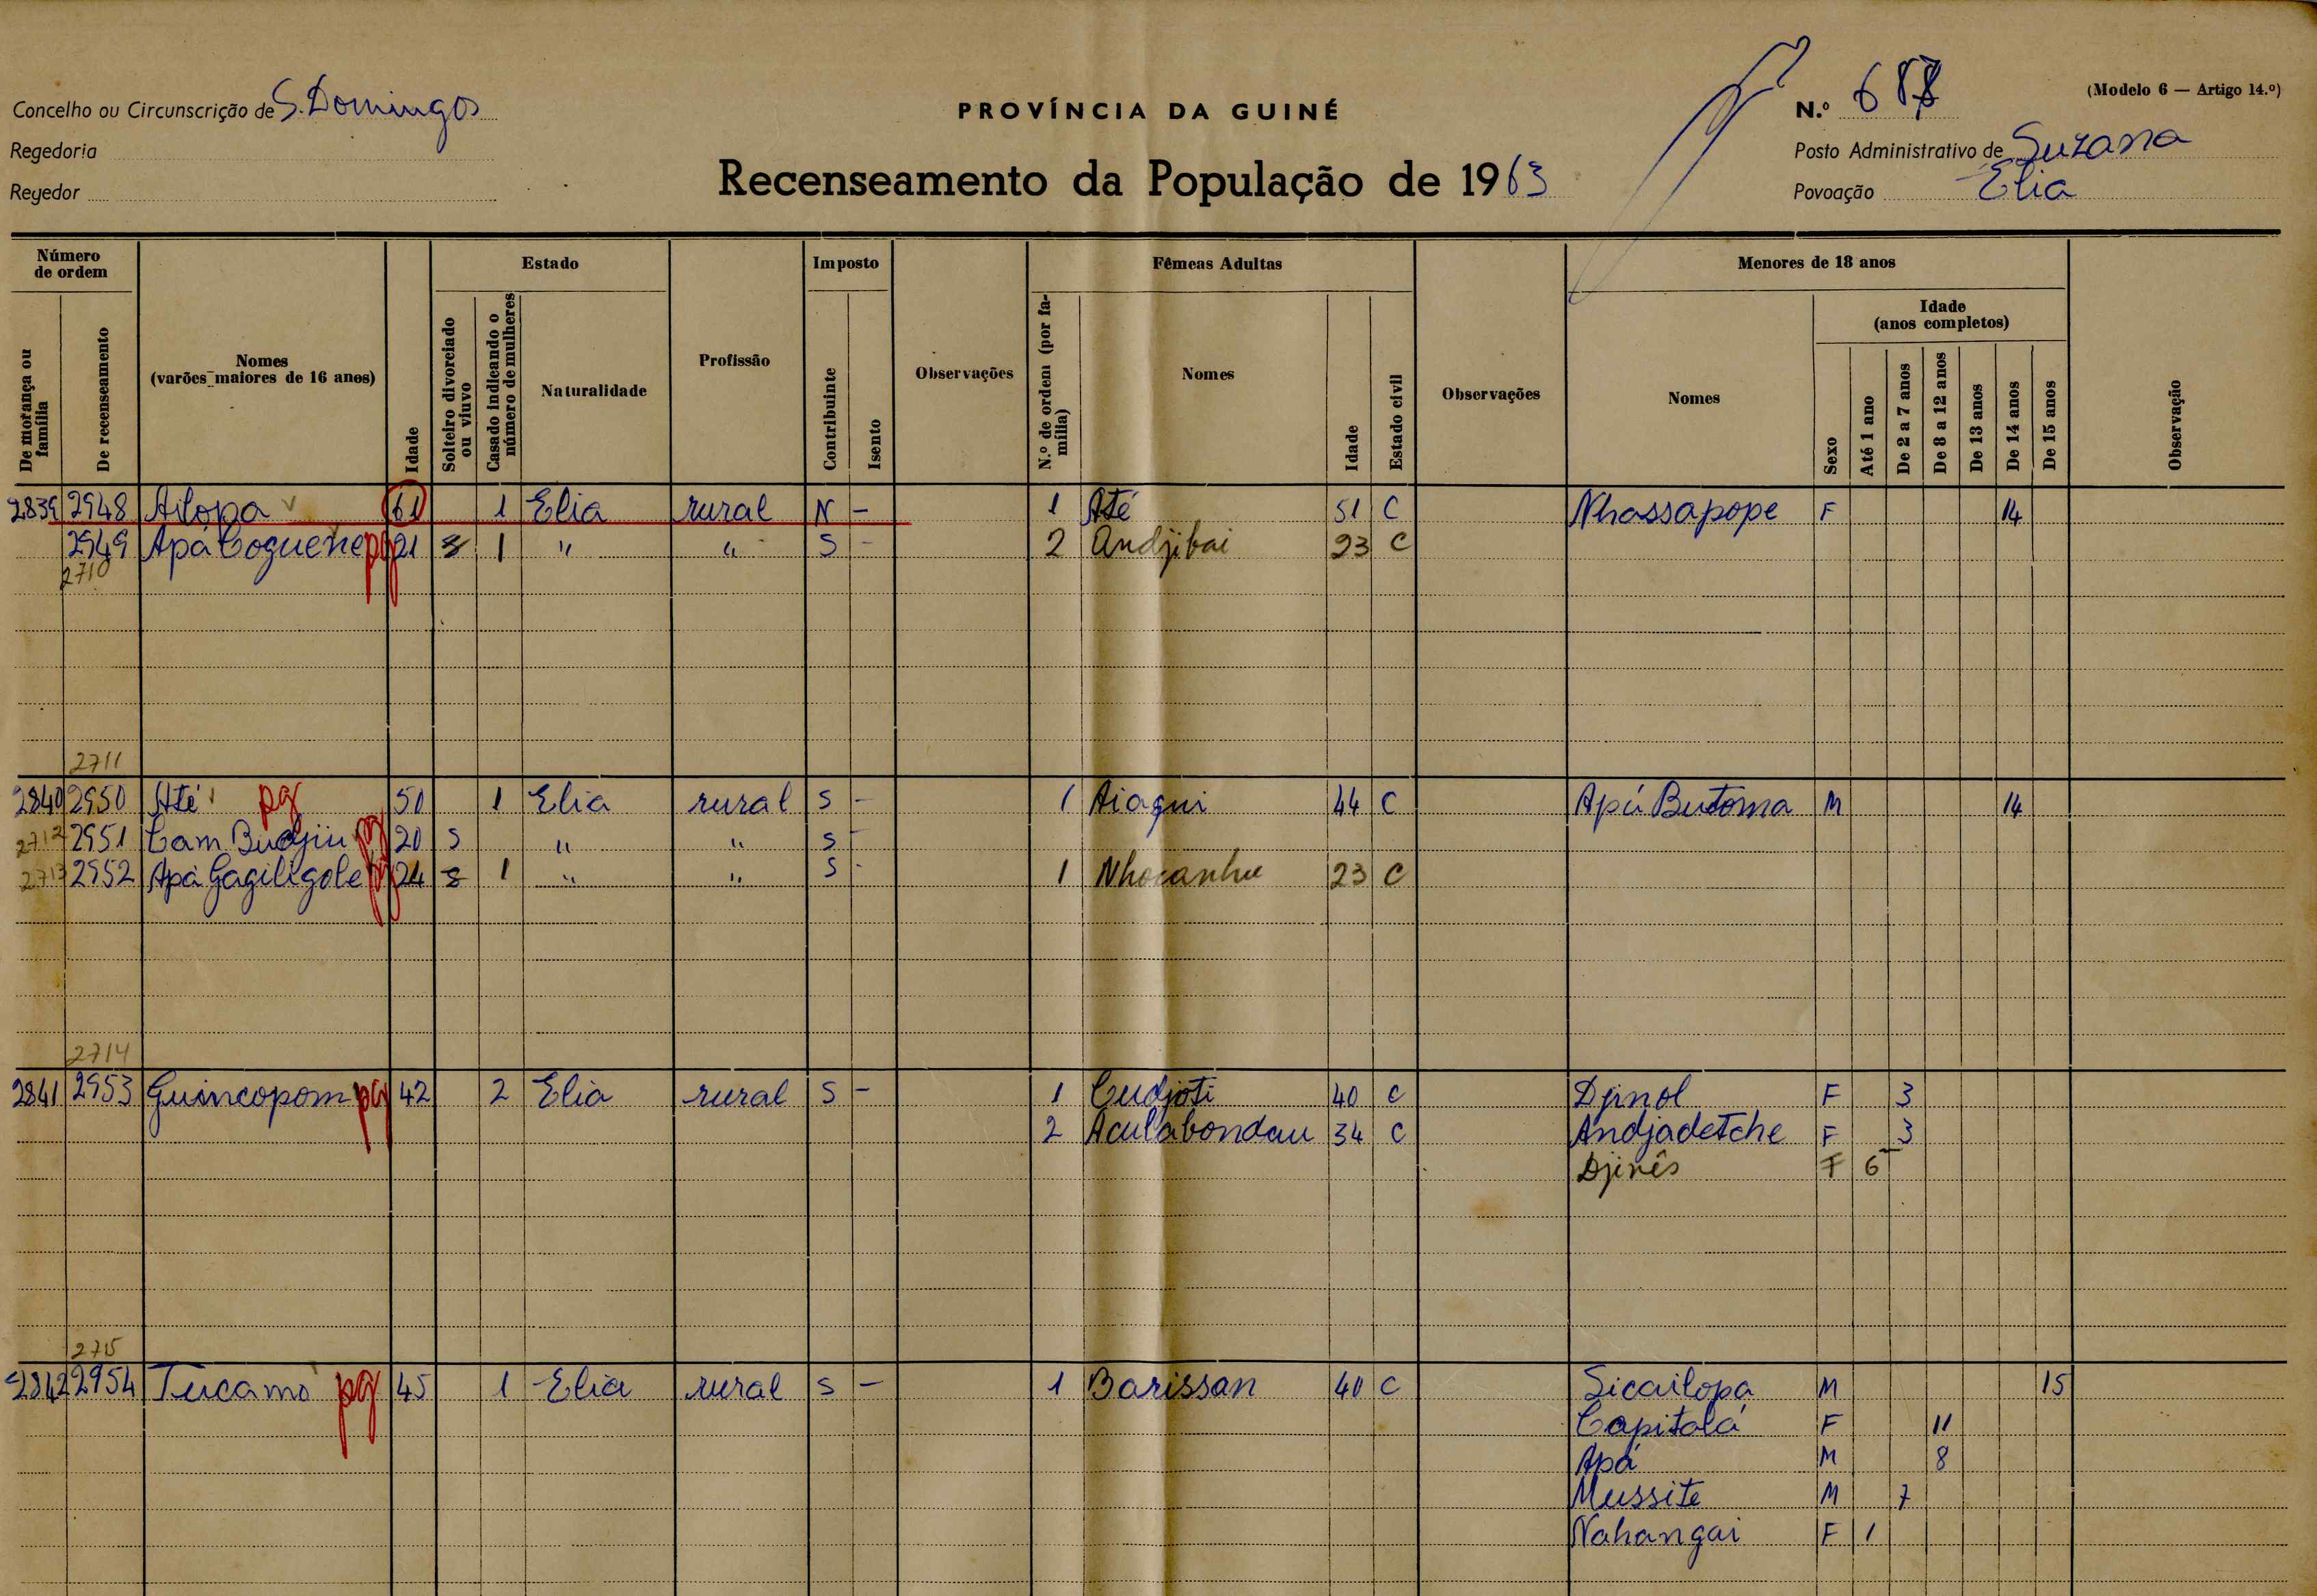 (Modelo 6 — Artigo 14.º)
Concelho ou Circunscrição de S. Domingos
PROVÍNCIA DA GUINÉ
N.º 687
Regedoria
Posto Administrativo de Suzana
Regedor
Recenseamento da População de 1963
Povoação Elia
Número de ordem
De morança ou família
De recenseamento
Nomes (varões maiores de 16 anos)
Idade
Estado
Solteiro divorciado ou viuvo
Casado indicando o número de mulheres
Naturalidade
Profissão
Imposto
Contribuinte
Isento
Observações
Fêmeas Adultas
N.º de ordem (por família)
Nomes
Idade
Estado civil
Observações
Menores de 18 anos
Nomes
Sexo
Idade (anos completos)
Até 1 ano
De 2 a 7 anos
De 8 a 12 anos
De 13 anos
De 14 anos
De 15 anos
Observação
2839 2948 Ailopa 61 1 Elia rural N - 1 Até 51 C Nhassapope F 14
2949 Apá Coguene pg 21 s 1 " " S - 2 Andjibai 23 C
2710
2711
2840 2950 Até pg 50 1 Elia rural S - 1 Aiaqui 44 C Apú Butoma M 14
2712 2951 Cam Budjiu pg 20 S " " S -
2713 2952 Apá Gagiligole pg 24 s 1 " " S - 1 Nhocanhu 23 C
2714
2841 2953 Guincopom pg 42 2 Elia rural S - 1 Cudjoti 40 C Djinol F 3
2 Aculabondau 34 C Andjadetche F 3
Djinês F 6
2715
2842 2954 Tucamo pg 45 1 Elia rural S - 1 Barissan 40 C Sicailopa M 15
Capitalá F 11
Apá M 8
Mussite M 7
Nahangai F 1